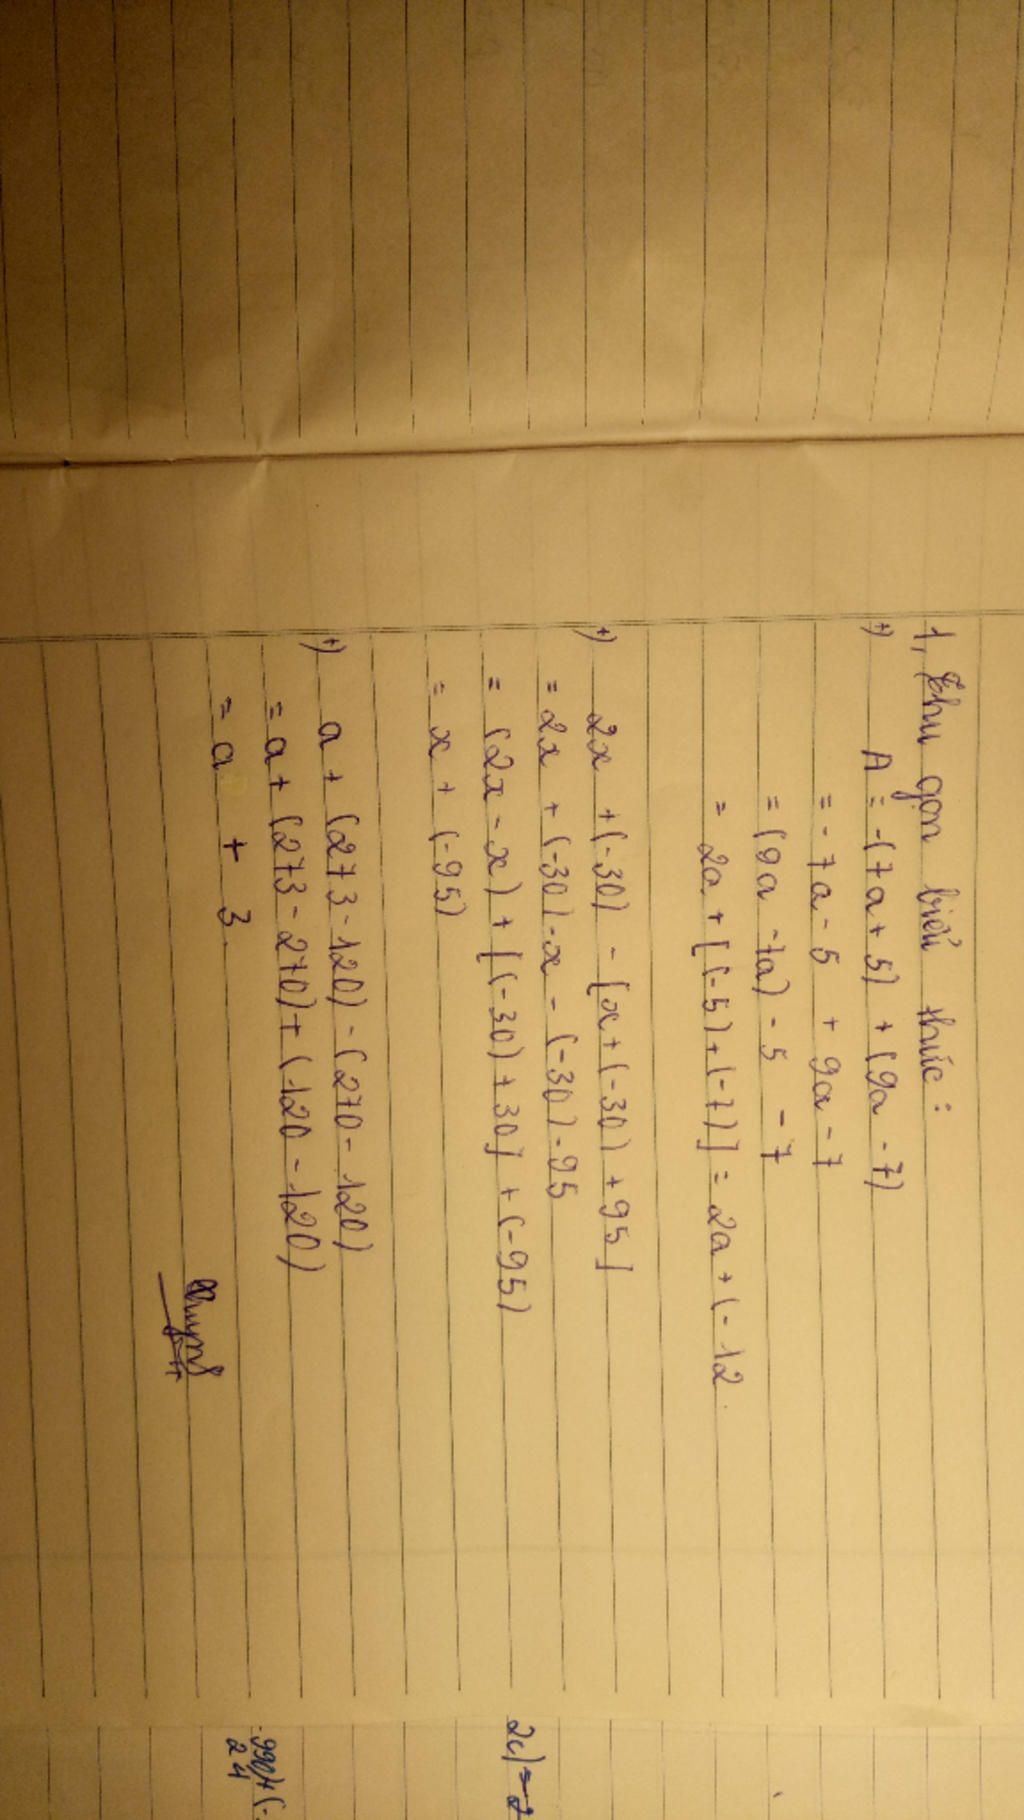 1, Thu gọn biểu thức :
+) A = -(7a + 5) + (9a - 7)
= - 7a - 5 + 9a - 7
= (9a - 7a) - 5 - 7
= 2a + [(-5) + (-7)] = 2a + (-12
+) 2x + (-30) - [x + (-30) + 95]
= 2x + (-30) - x - (-30) - 95
= (2x - x) + [(-30) + 30] + (-95)
= x + (-95)
+) a + (273 - 120) - (270 - 120)
= a + (273 - 270) + (120 - 120)
= a + 3